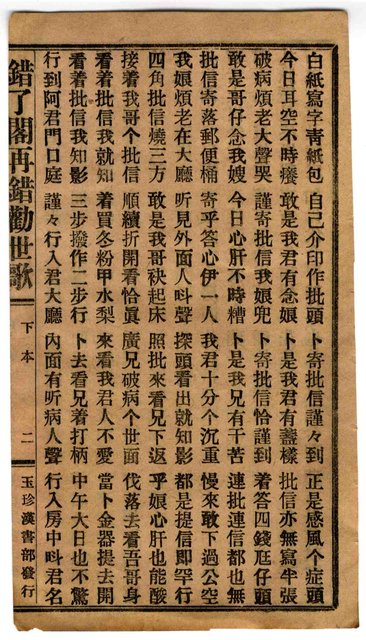 白紙寫字靑紙包 自己介印作批頭 卜寄批信謹々到 正是感風个症頭
今日耳空不時癢 敢是我君有念娘 卜是我君有盡樣 批信亦無寫半張
破病煩老大聲哭 謹寄批信我娘兜 卜寄批信恰謹到 着答四錢尪仔頭
敢是哥仔念我嫂 今日心肝不時糟 卜是我兄有干苦 連批連信都也無
批信寄落郵便桶 寄乎答心伊一人 我君十分个沉重 慢來敢下過公空
我娘煩老在大廳 听見外面人叫聲 探頭看出就知影 都是提信即罕行
四角批信燒三方 敢是我哥袂起床 照批來看見下返 乎娘心肝也能酸
接着我哥个批信 順續折開看恰眞 廣兄破病个世面 伐落去看吾哥身
看着批信我就知 着買冬粉甲水梨 來看我君人不愛 當卜金器提去開
看着批信我知影 三步撥作二步行 卜去看兄着打柄 中午大日也不驚
行到阿君門口庭 謹々行入君大廳 內面有听病人聲 行入房中叫君名
錯了閣再錯勸世歌 下本 二 玉珍漢書部發行